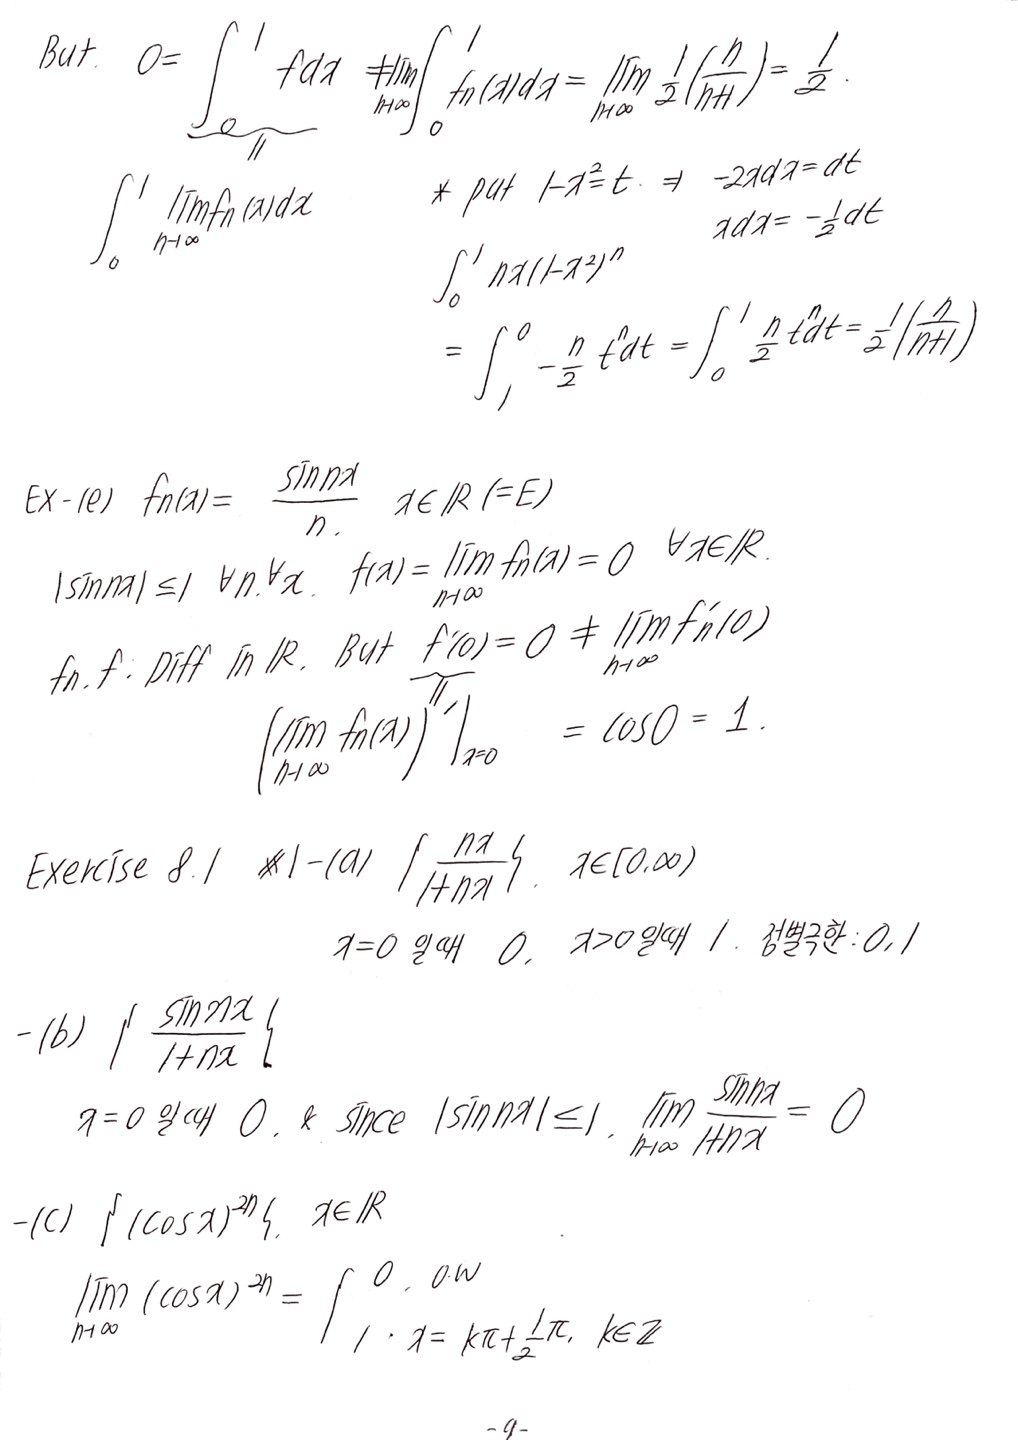 But. 0 = ∫₀¹ f dx ≠ lim_{n→∞} ∫₀¹ fn(x)dx = lim_{n→∞} 1/2 (n/(n+1)) = 1/2.
∥
∫₀¹ lim_{n→∞} fn(x)dx
* put 1-x² = t. ⇒ -2xdx = dt
xdx = -1/2 dt
∫₀¹ nx(1-x²)ⁿ
= ∫₁⁰ -n/2 tⁿdt = ∫₀¹ n/2 tⁿdt = 1/2 (n/(n+1))
Ex-(e) fn(x) = sin nx / n. x∈ℝ (=E)
|sin nx| ≤ 1 ∀n.∀x. f(x) = lim_{n→∞} fn(x) = 0 ∀x∈ℝ.
fn. f : Diff in ℝ. But f'(0) = 0 ≠ lim_{n→∞} fn'(0)
∥
(lim_{n→∞} fn(x))' |_{x=0} = cos0 = 1.
Exercise 8.1 #1-(a) { nx / (1+nx) }. x∈[0,∞)
x=0 일때 0, x>0일때 1. 점별극한: 0, 1
-(b) { sin nx / (1+nx) }
x=0 일때 0. & since |sin nx| ≤ 1, lim_{n→∞} sin nx / (1+nx) = 0
-(c) { (cos x)²ⁿ }, x∈ℝ
lim_{n→∞} (cos x)²ⁿ = { 0, o.w
1. x = kπ + 1/2 π, k∈ℤ
-9-